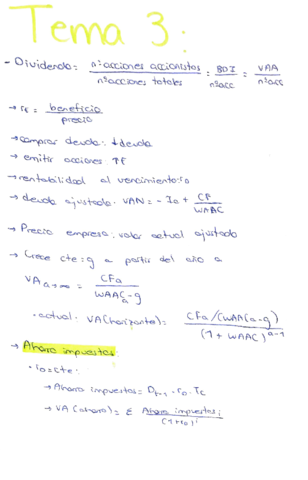 Tema 3:
- Dividendo: nº acciones accionistas / nº acciones totales = BDI / nº acc = VAA / nº acc
→ rf = beneficio / precio
→ comprar deuda: ↓ deuda
→ emitir acciones ↑f
→ rentabilidad al vencimiento: r0
→ deuda ajustada: VAN = - I0 + CF / WAAC
→ Precio empresa: valor actual ajustado
→ Crece cte: g a partir del año a
VAa→∞ = CFa / WAACa - g
· actual: VA(horizonte) = CFa/(WAACa - g) / (1 + WAAC)^a-1
→ Ahorro impuestos:
· r0 = cte:
→ Ahorro impuestos = Dt-1 · r0 · Tc
→ VA (ahorro) = Σ Ahorro impuestos i / (1+r0)^i